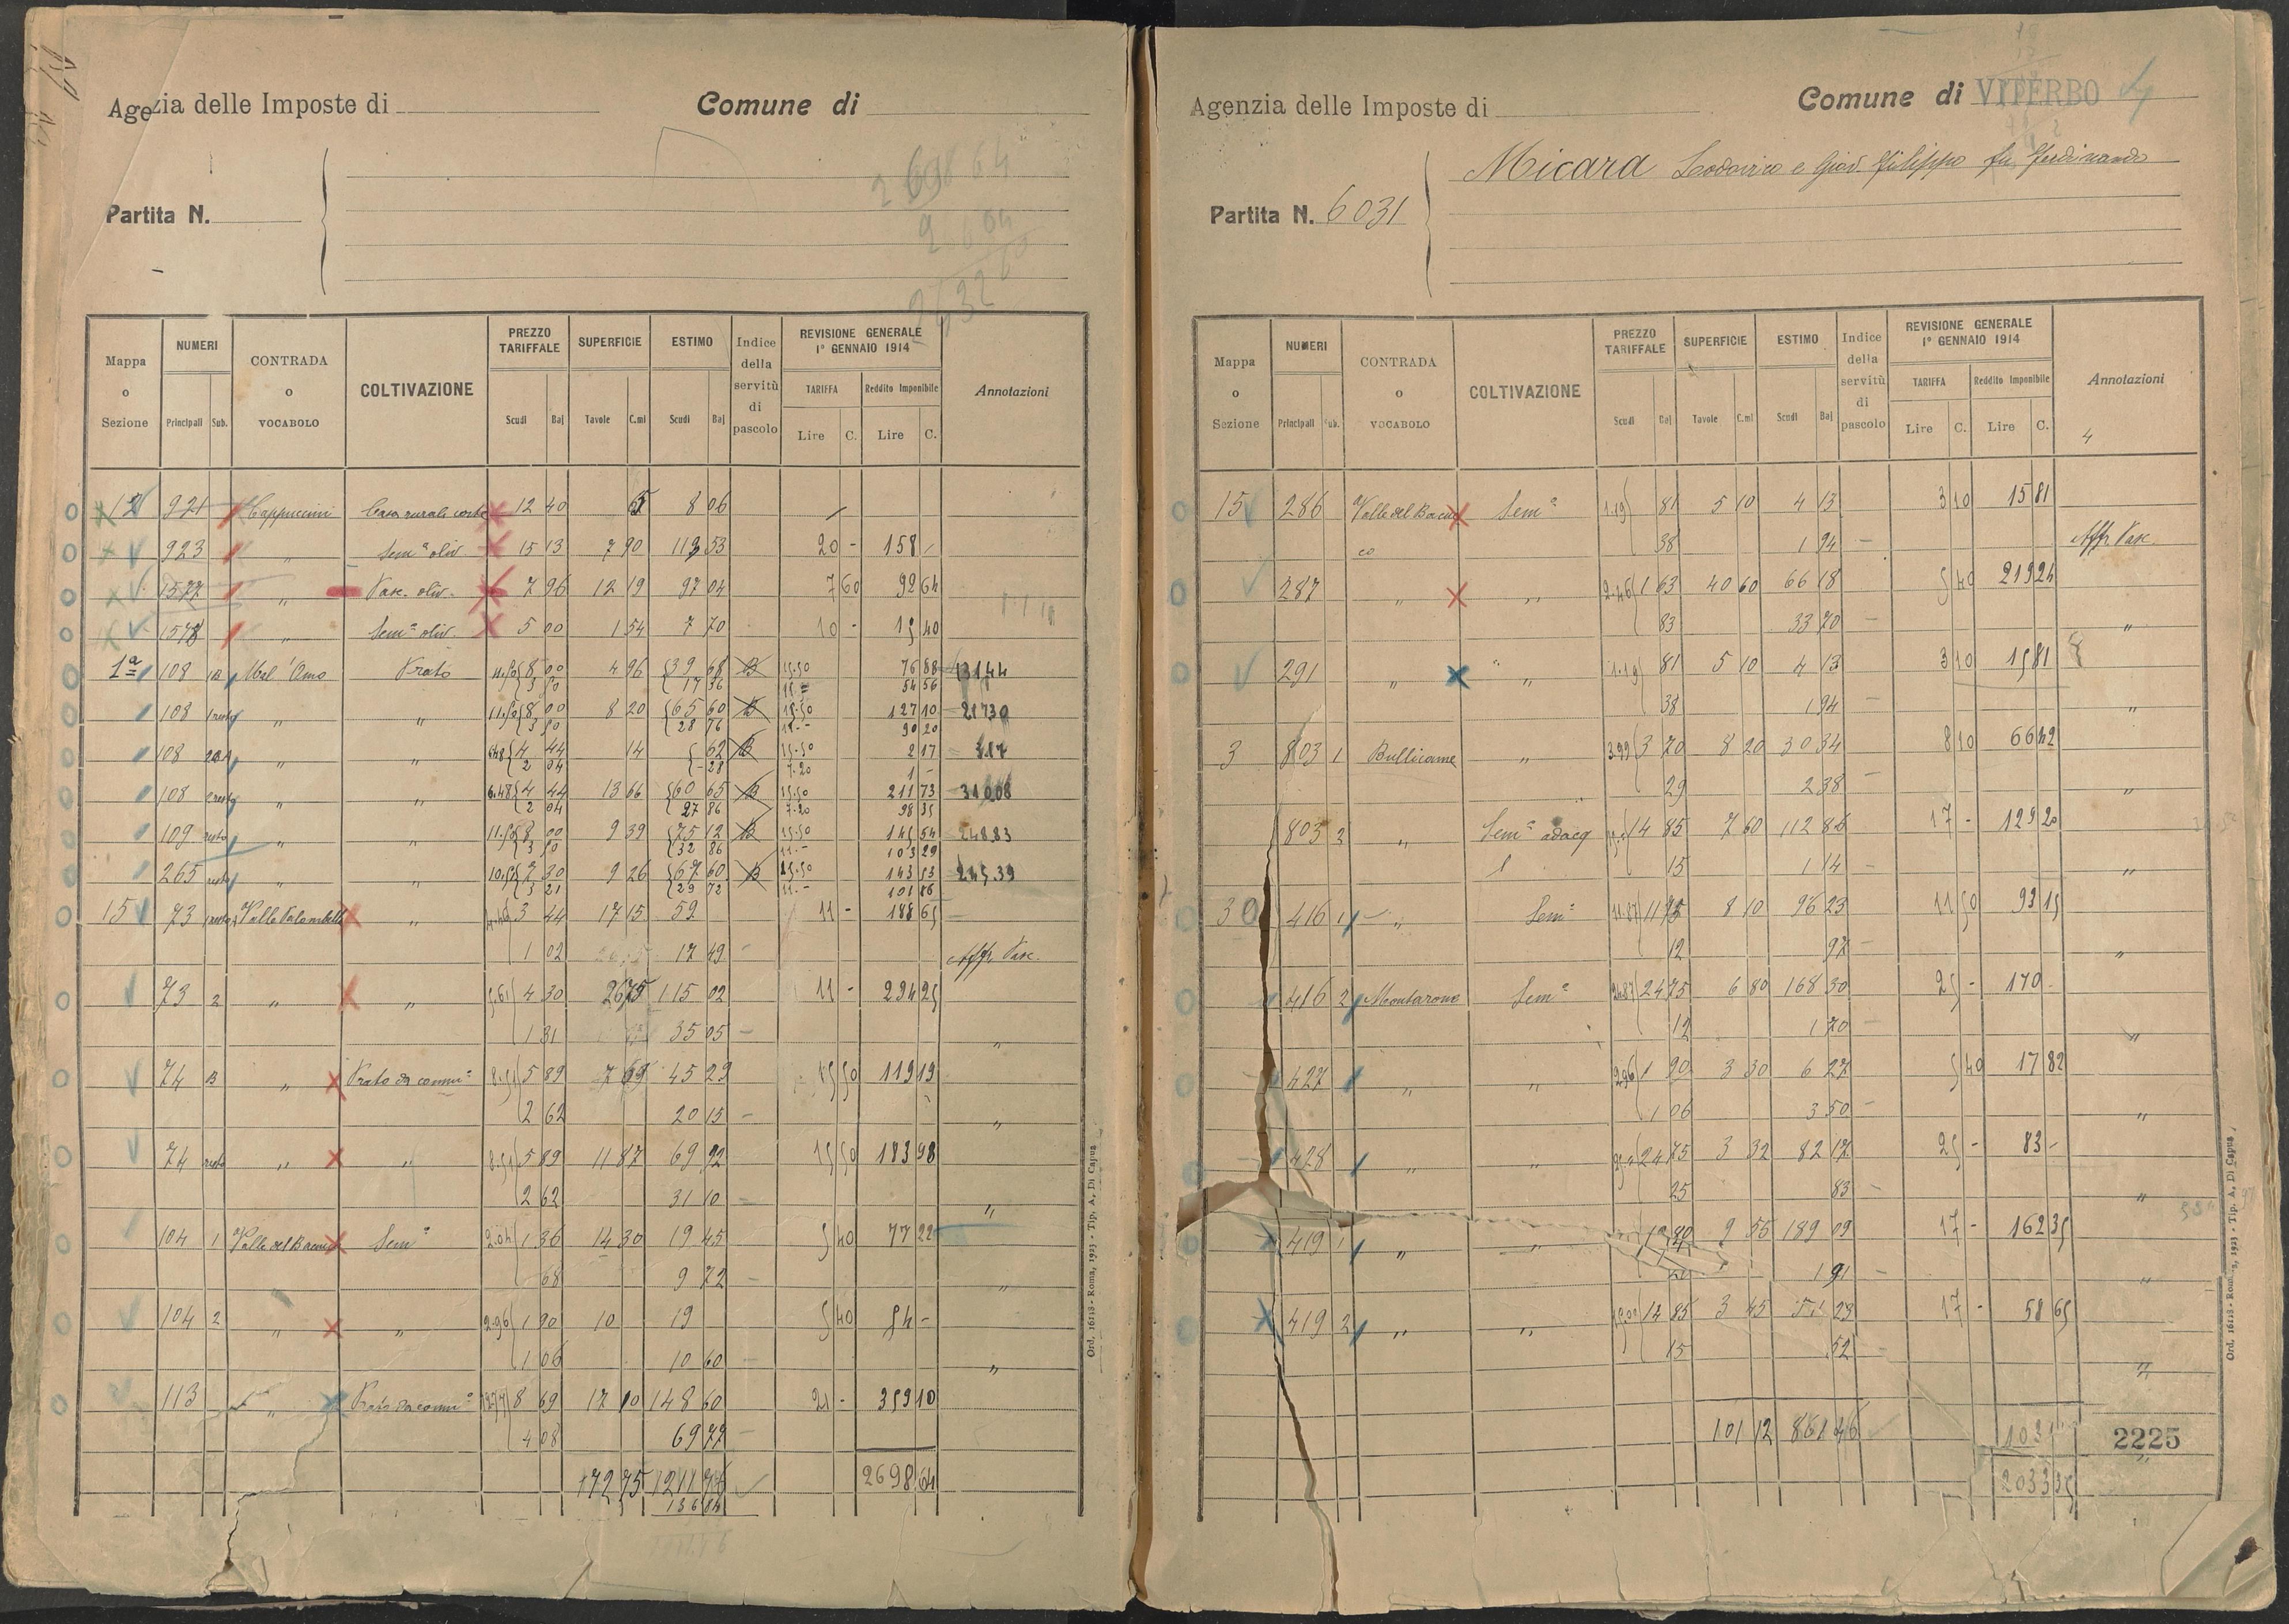 Agenzia delle Imposte di
Comune di
Partita N.
2698 64
Mappa o Sezione | NUMERI Principali Sub. | CONTRADA o VOCABOLO | COLTIVAZIONE | PREZZO TARIFFALE Scudi Baj | SUPERFICIE Tavole C.mi | ESTIMO Scudi Baj | Indice della servitù di pascolo | REVISIONE GENERALE 1° GENNAIO 1914 TARIFFA Lire C. Reddito Imponibile Lire C. | Annotazioni
12 921 Cappuccini Casa rurale corte 12 40 65 8 06
923 " Sem.º oliv. 15 13 7 90 119 53 20 - 158
1577 " Pasc. oliv. 7 96 12 19 97 04 7 60 92 64
1578 " Sem.º oliv. 5 00 1 54 7 70 10 - 15 40
1ª 108 Mal'Amo Prato 11.50 8 00 4 96 39 68 B 15.50 76 88 131 44
3 50 17 36 11.= 54 56
108 " " 11.50 8 00 8 20 65 60 B 15.50 127 10 217 30
3 50 28 76 11.- 90 20
108 " " 6.48 4 44 14 62 B 15.50 2 17 3.17
2 04 28 7.20 1 -
108 " " 6.48 4 44 13 66 60 65 B 15.50 211 73 310 08
2 04 27 86 7.20 98 35
109 resto " " 11.50 8 00 9 39 75 12 B 15.50 145 54 248.83
3 50 32 86 11.- 103 29
265 resto " " 10.51 7 30 9 26 67 60 B 15.50 143 53 245.39
3 21 29 72 11.- 101 86
15 73 Valle Palombella " 4.46 3 44 17 15 59 11 - 188 65
1 02 17 49 - Aff. Pasc.
73 2 " " 5.61 4 30 26 75 115 02 11 - 294 25
1 31 35 05 - "
74 B " Prato da comm.º 8.51 5 89 7 69 45 29 15 50 119 19
2 62 20 15 - "
74 resto " " 8.51 5 89 11 87 69 92 15 50 183 98
2 62 31 10 - "
104 1 Valle del Bacucco Sem.º 2.04 1 36 14 30 19 45 5 40 77 22
68 9 72 - "
104 2 " " 2.96 1 90 10 19 5 40 54 -
1 06 10 60 - "
113 " Prato da comm.º 12.77 8 69 17 10 148 60 21 - 359 10
4 08 69 77 -
172 75 1211 76 2698 64
136 84
Ord. 16118 - Roma, 1923 - Tip. A. Di Capua
Agenzia delle Imposte di
Comune di VITERBO
Partita N. 6031
Micara Lodovico e Giov. Filippo fu Ferdinando
Mappa o Sezione | NUMERI Principali Sub. | CONTRADA o VOCABOLO | COLTIVAZIONE | PREZZO TARIFFALE Scudi Baj | SUPERFICIE Tavole C.mi | ESTIMO Scudi Baj | Indice della servitù di pascolo | REVISIONE GENERALE 1° GENNAIO 1914 TARIFFA Lire C. Reddito Imponibile Lire C. | Annotazioni
4
15 286 Valle del Bacucco Sem.º 1.19 81 5 10 4 13 3 10 15 81
co 38 1 94 - Aff. Pasc.
287 " " 2.46 1 63 40 60 66 18 5 40 219 24
83 33 70 - "
291 " " 1.19 81 5 10 4 13 3 10 15 81
38 1 94 - "
3 803 1 Bullicame " 3.99 3 70 8 20 30 34 8 10 66 42
29 2 38 - "
803 2 " Sem.º adacq 14 85 7 60 112 86 17 - 129 20
15 1 14 - "
30 416 1 " Sem.º 11.87 8 10 96 23 11 50 93 15
12 97 - "
416 2 Montarone Sem.º 24.87 24 75 6 80 168 30 25 - 170 -
12 1 70 - "
427 " " 2.96 1 90 3 30 6 27 5 40 17 82
1 06 3 50 - "
428 " " 24 75 3 32 82 17 25 - 83 -
25 83 - "
419 1 " " 19 80 9 55 189 09 17 - 162 35
1 91 - "
419 2 " " 15.00 14 85 3 45 51 23 17 - 58 65
15 52 - "
101 12 861 46 1031 2225
2033 35
Ord. 16118 - Roma, 1923 - Tip. A. Di Capua